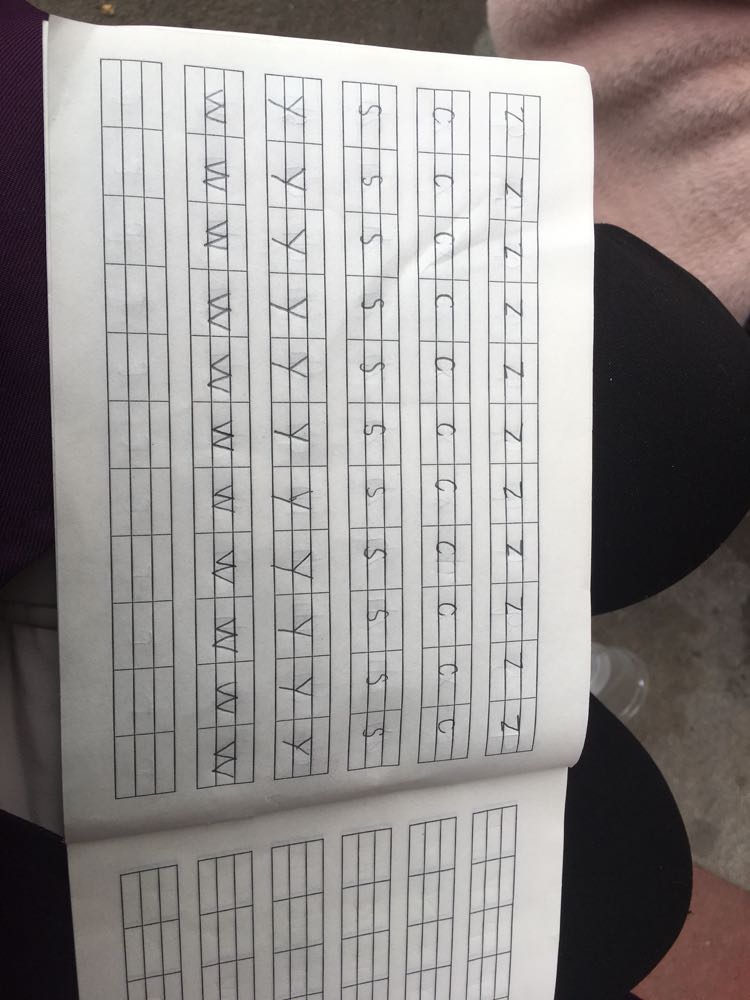 z z z z z z z z z z z
c c c c c c c c c c c
s s s s s s s s s s s
y y y y y y y y y y y
w w w w w w w w w w w